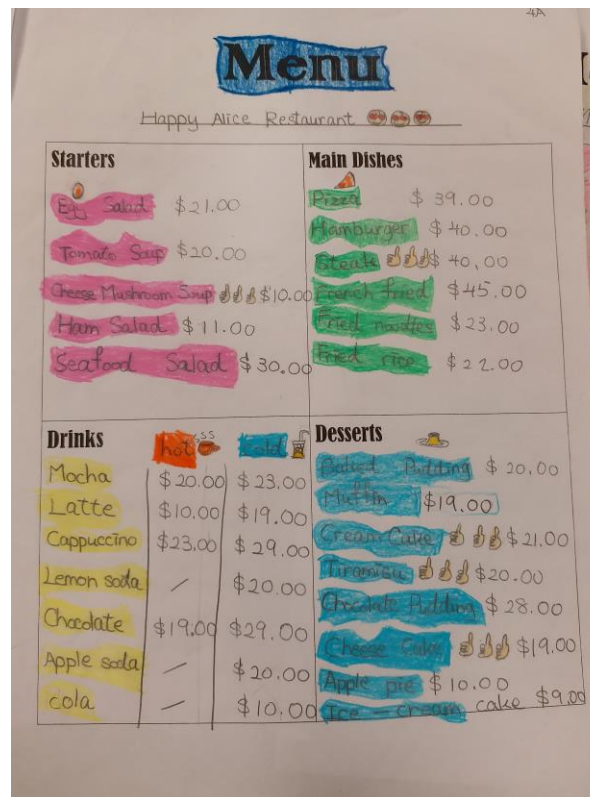 4A
Menu
Happy Alice Restaurant
Starters
Egg Salad $21.00
Tomato Soup $20.00
Cheese Mushroom Soup $10.00
Ham Salad $11.00
Seafood Salad $30.00
Main Dishes
Pizza $39.00
Hamburger $40.00
Steak $40.00
French fried $45.00
Fried noodles $23.00
Fried rice $22.00
Drinks hot cold
Mocha $20.00 $23.00
Latte $10.00 $19.00
Cappuccino $23.00 $29.00
Lemon soda / $20.00
Chocolate $19.00 $29.00
Apple soda / $20.00
cola / $10.00
Desserts
Pudding $20.00
Muffin $19.00
Cream Cake $21.00
Tiramisu $20.00
Chocolate Pudding $28.00
Cheese Cake $19.00
Apple pie $10.00
Ice-cream cake $9.00